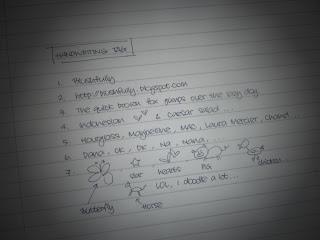 HANDWRITING TAG
1. Blushfully
2. http://blushfully.blogspot.com
3. The quick brown fox jumps over the lazy dog
4. Indonesian & Caesar salad ...
5. Hourglass, Magnetine, MAC, Laura Mercier, Chanel ...
6. Dana, OK, Dk, Na, Nana, ....
7.
star hearts Pig chicken
LOL, I doodle a lot...
Butterfly Horse